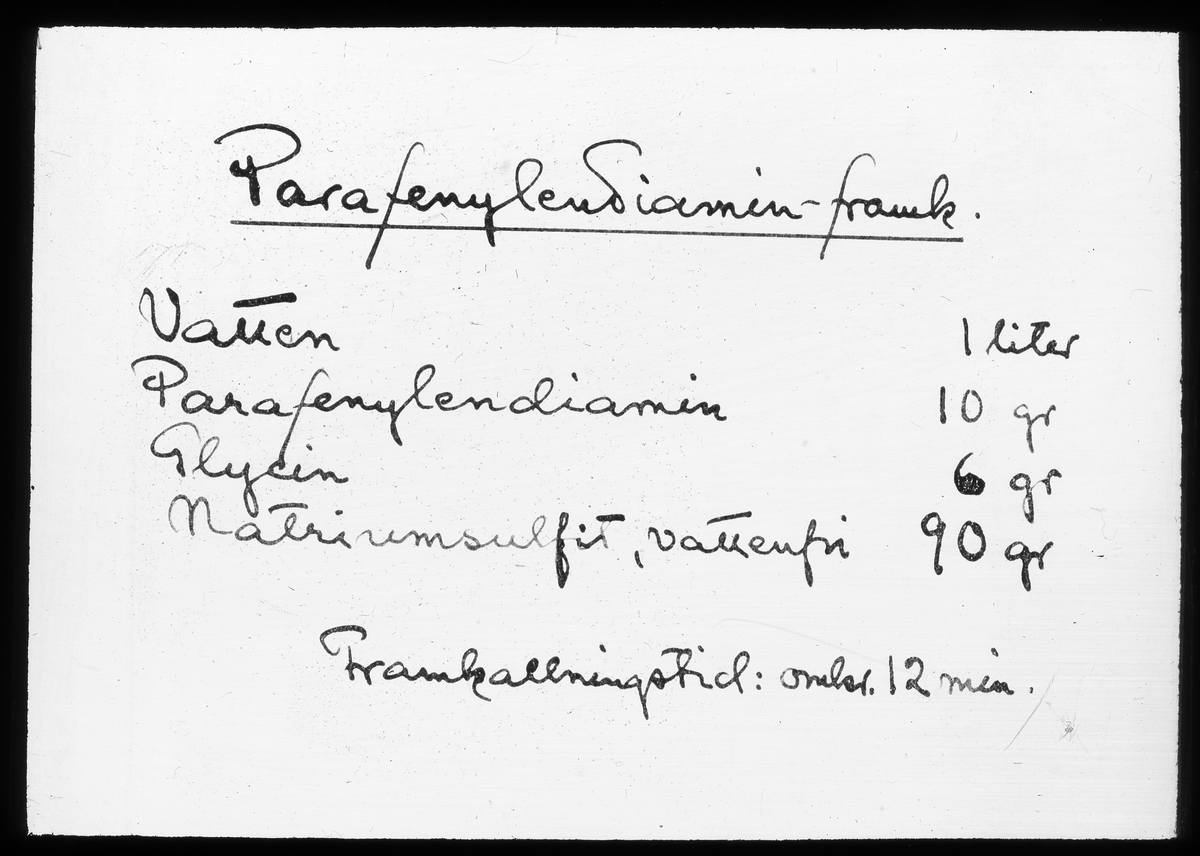 Parafenylendiamin-framk.
Vatten 1 liter
Parafenylendiamin 10 gr
Glycin 6 gr
Natriumsulfit, vattenfri 90 gr
Framkallningstid: omkr. 12 min.